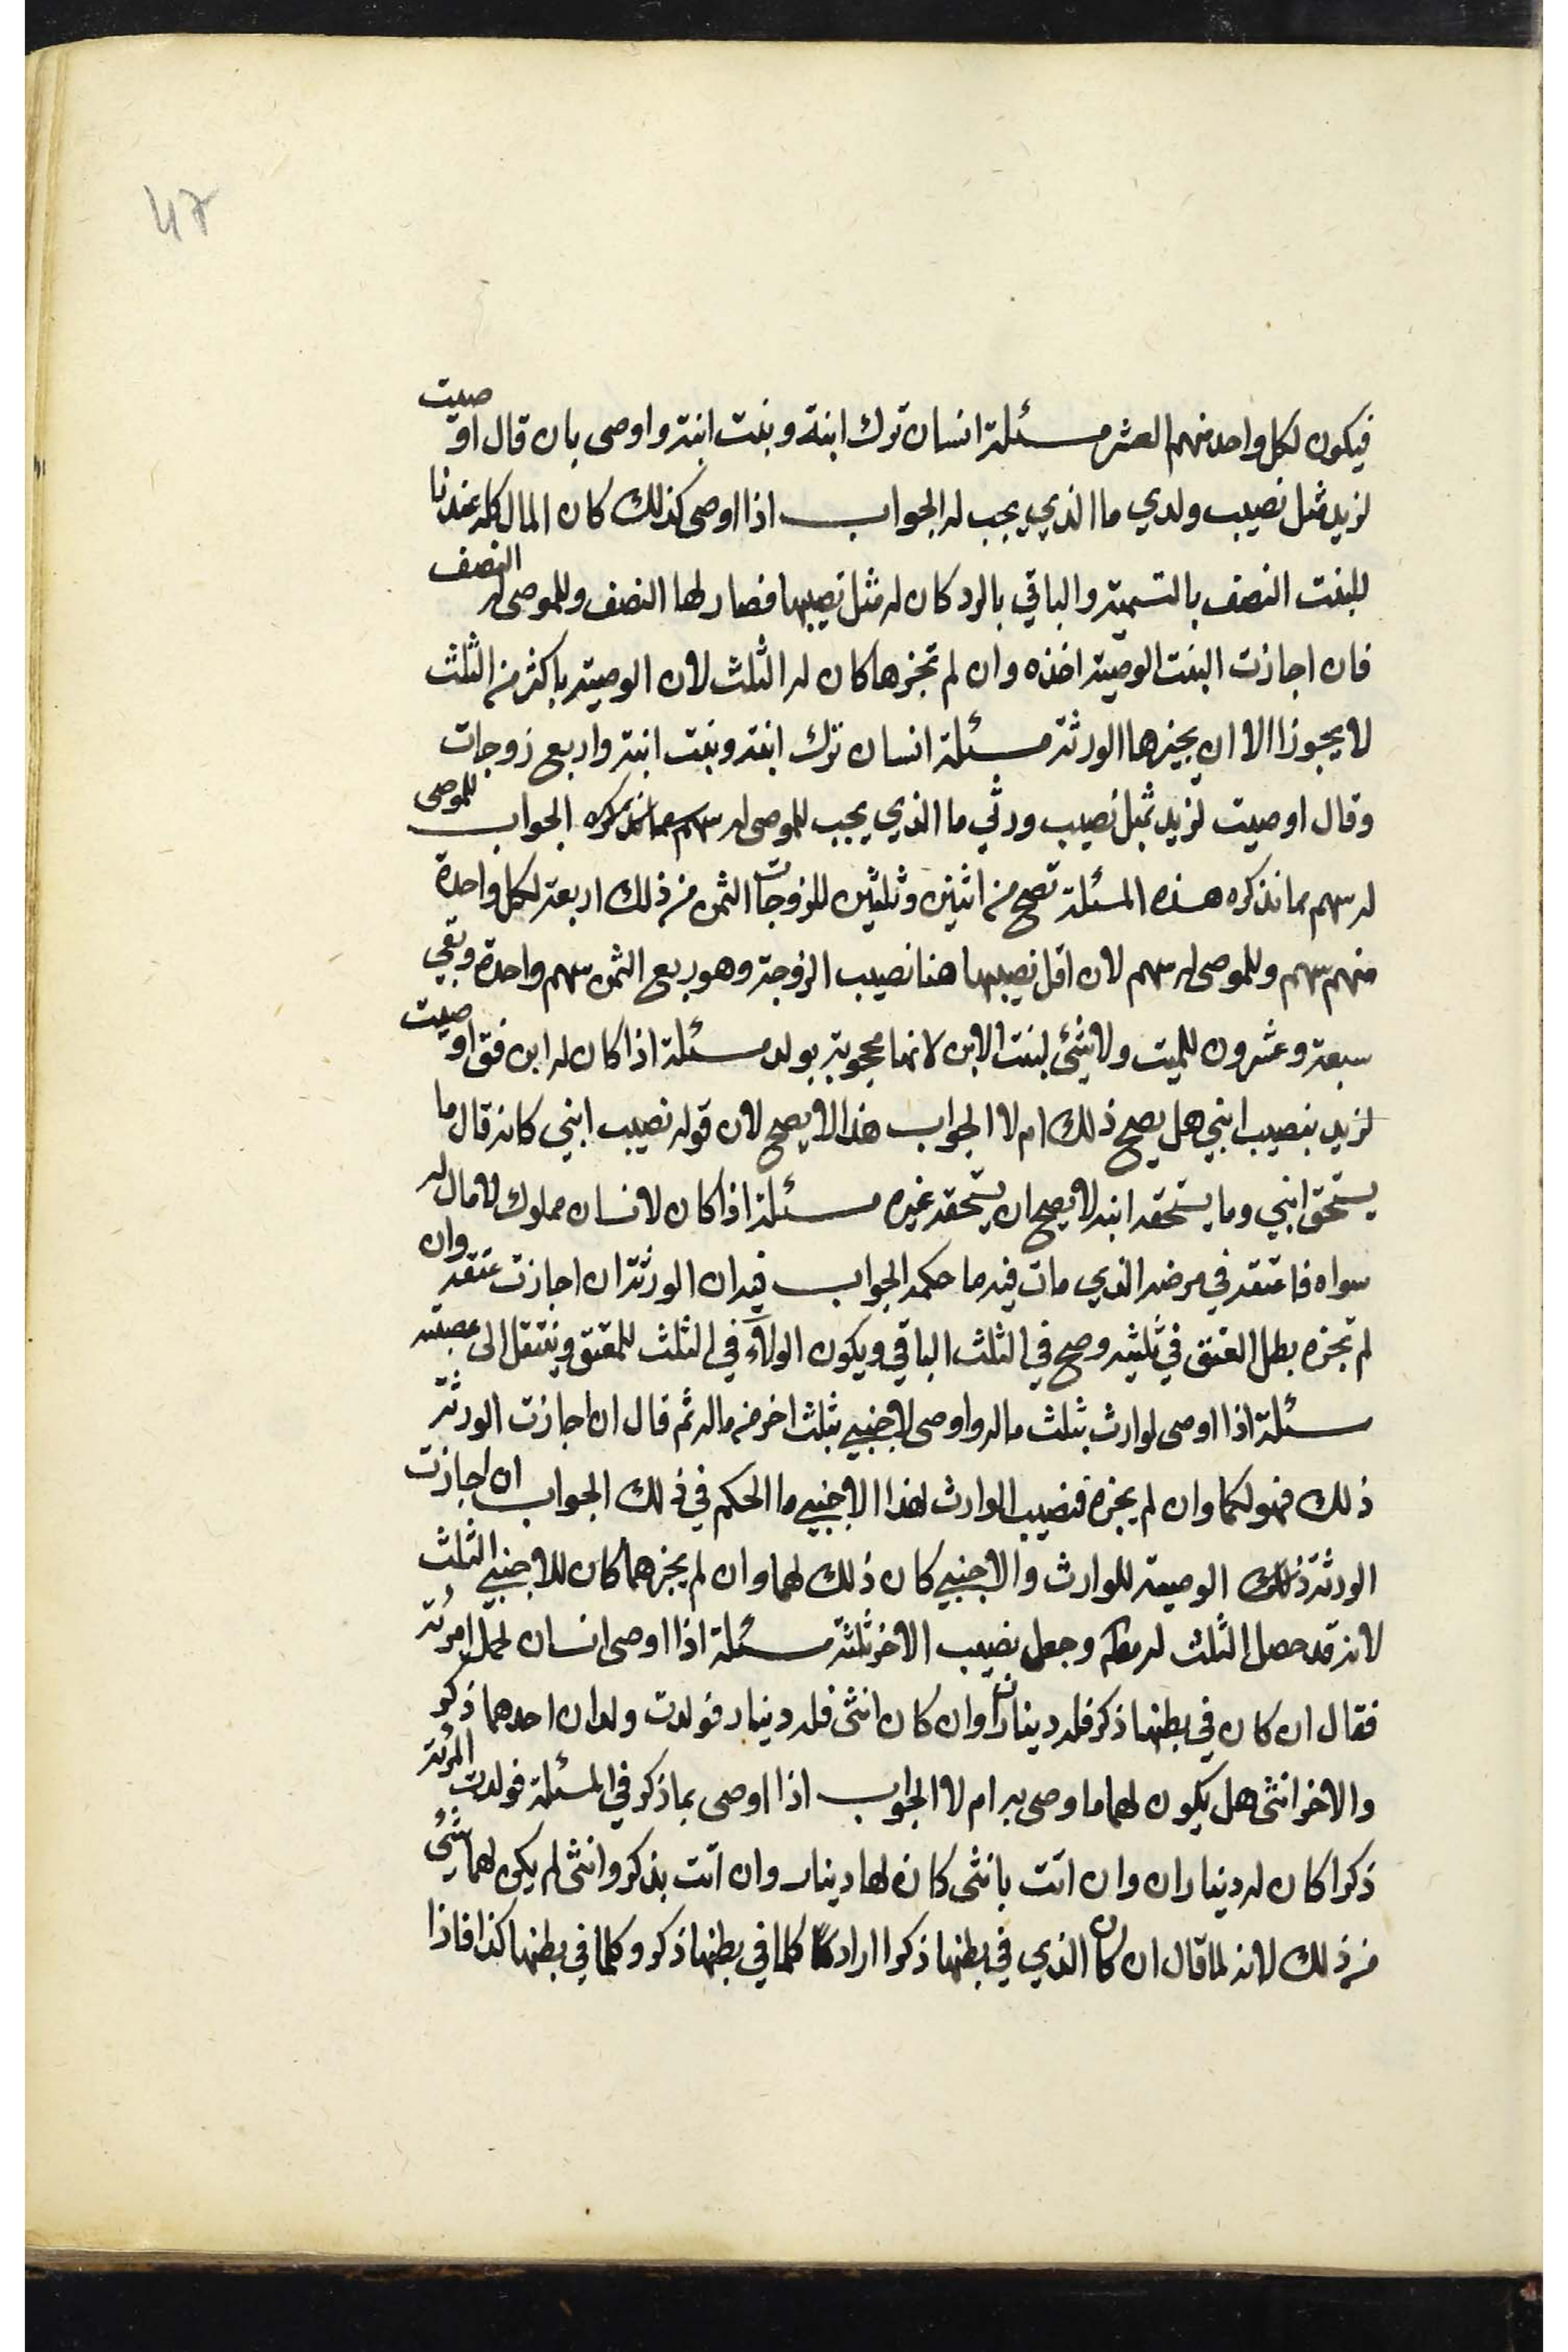 47
فيكون لكل واحد منهم العشر مسئلة انسان ترك ابنة وبنت ابنة واوصى بان قال اوصيت
لزيد مثل نصيب ولدي ما الذي يجب له الجواب اذا اوصى كذلك كان المال كله عندنا
للبنت النصف بالتسمية والباقي بالرد كان له مثل نصيبها فصار لها النصف وللموصى له النصف
فان اجازت البنت الوصية اخذه وان لم تجزها كان له الثلث لان الوصية باكثر من الثلث
لا يجوز الا ان يجيزها الورثة مسئلة انسان ترك ابنة وبنت ابنة واربع زوجات
وقال اوصيت لزيد بمثل نصيب ورثي ما الذي يجب للموصى له سهم مما نذكره الجواب للموصى
له سهم مما نذكره هذه المسئلة تصح من اثنين وثلثين للزوجات الثمن من ذلك اربعة لكل واحدة
منهم سهم وللموصى له سهم لان اقل نصيبها هنا نصيب الزوجة وهو ربع الثمن سهم واحدة وبقي
سبعة وعشرون للميت ولا شئ لبنت الابن لانها محجوبة بولد مسئلة اذا كان له ابن فق اوصيت
لزيد بنصيب ابني هل يصح ذلك ام لا الجواب هذا لا يصح لان قوله نصيب ابني كانه قال ما
يستحق ابني وما يستحقه ابنه لا يصح ان يستحقه غيره مسئلة اذا كان لانسان مملوك لا مال له
سواه فاعتقه في مرضه الذي مات فيه ما حكمه الجواب فيه ان الورثة ان اجازت عتقه وان
لم تجزه بطل العتق في ثلثيه وصح في الثلث الباقي ويكون الولاء في الثلث للمعتق وينتقل الى عصبته
مسئلة اذا اوصى لوارث بثلث ماله واوصى لاجنبي بثلث اخر من ماله ثم قال ان اجازت الورثة
ذلك فهو لكما وان لم يجزه فنصيب الوارث لهذا الاجنبي ما الحكم في ذلك الجواب ان اجازت
الورثة ذلك الوصية للوارث والاجنبي كان ذلك لهما وان لم يجزهما كان للاجنبي الثلث
لانه قد حصل الثلث له وجعل نصيب الاخر ثلثة مسئلة اذا اوصى انسان لحمل امرئة
فقال ان كان في بطنها ذكر فله ديناران وان كان انثى فله دينار فولدت ولدان احدهما ذكر
والاخر انثى هل يكون لهما ما وصى به ام لا الجواب اذا اوصى بما ذكر في المسئلة فولدت المرئة
ذكرا كان له ديناران وان اتت بانثى كان لها دينار وان اتت بذكر وانثى لم يكن لهما شئ
من ذلك لانه لما قال ان كان الذي في بطنها ذكرا اراد كلما في بطنها ذكر وكلما في بطنها كذا فاذا